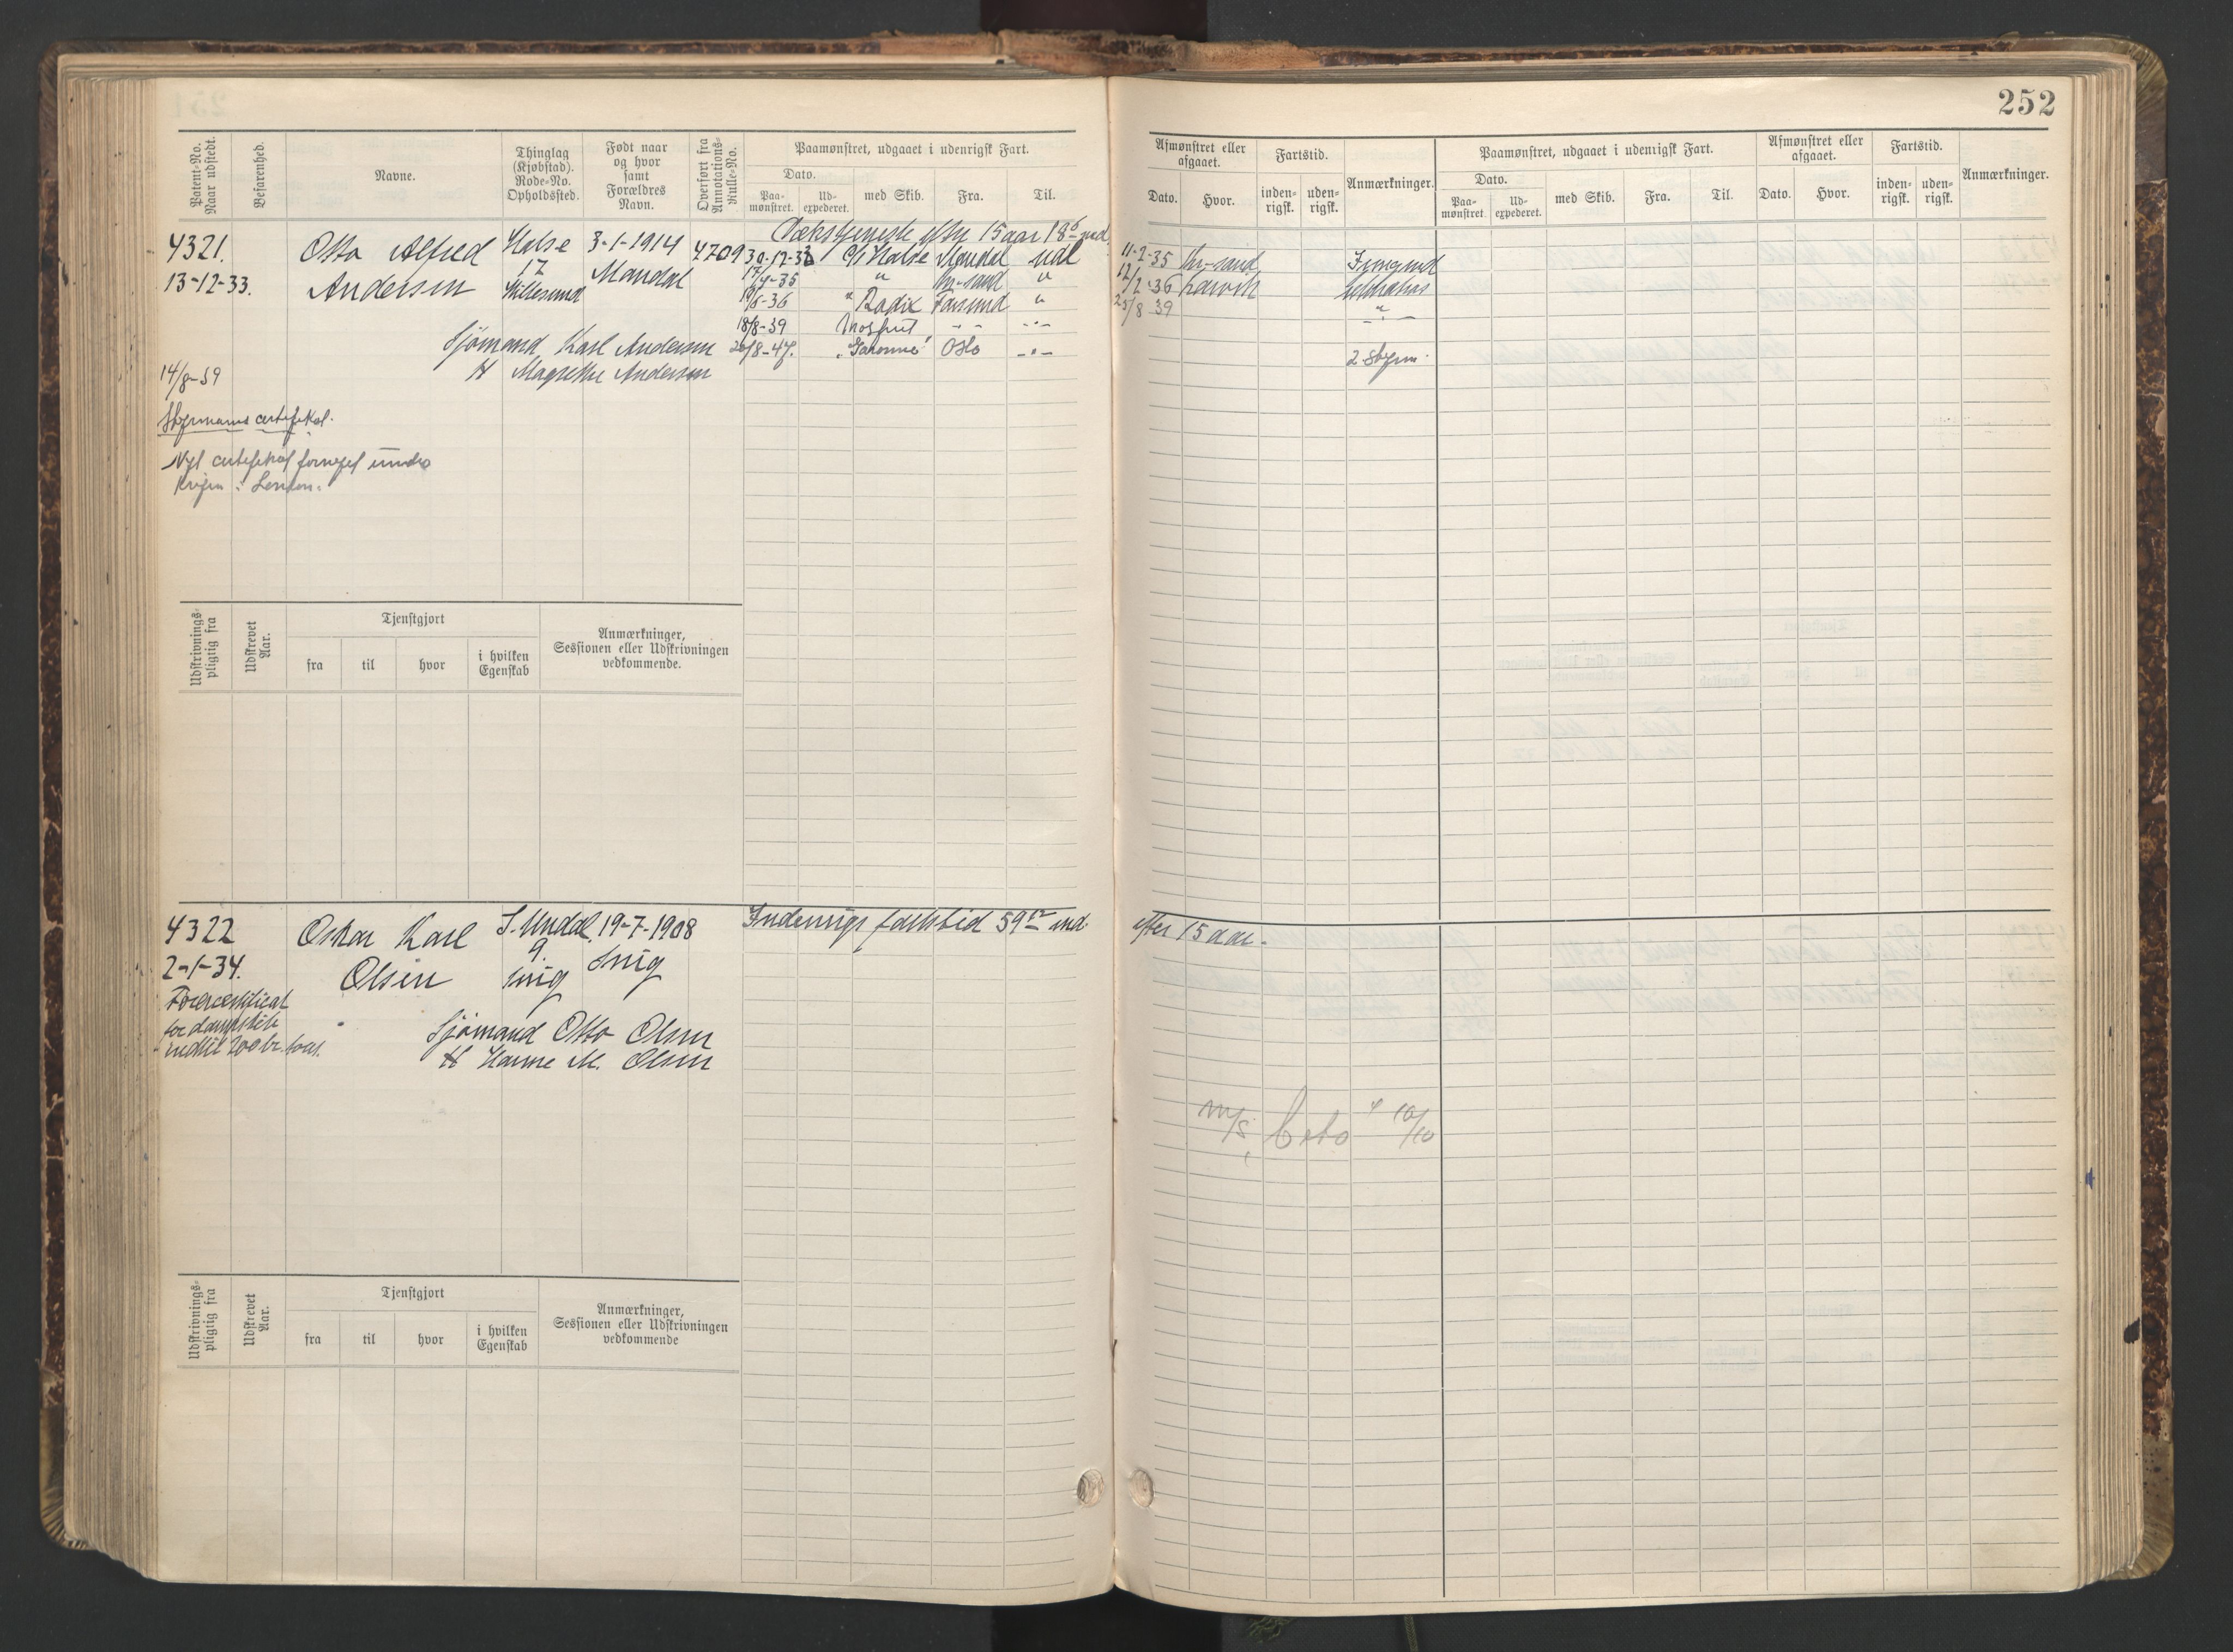 252
Patent-No. Naar udstedt.
Befarenhed.
Navne.
Thinglag (Kjøbstad). Rode-No. Opholdssted.
Født naar og hvor samt Forældres Navn.
Overført fra Annotations-Rulle-No.
Paamønstret, udgaaet i udenrigsk Fart.
Dato.
Paa-mønstret.
Ud-expederet.
med Skib.
Fra.
Til.
Afmønstret eller afgaaet.
Dato.
Hvor.
Fartstid.
inden-rigsk.
uden-rigsk.
Anmærkninger.
Paamønstret, udgaaet i udenrigsk Fart.
Dato.
Paa-mønstret
Ud-expederet.
med Skib.
Fra.
Til.
Afmønstret eller afgaaet.
Dato.
Hvor.
Fartstid.
inden-rigsk.
uden-rigsk.
Anmærkninger.
4321.
13-12-33.
Otto Alfred
Andersen
Halse
17
3-1-1914
Mandal
4709
efter 15 aar 18 md.
30-12-33 Halse Mandal udl
17/4-35 " Kr-sand "
19/5-36 " Radix Farsund "
18/8-39 Mosprit - - - " -
20/8-47. "Garonne" Oslo - " -
11-2-35 Kr-sand Jungmd
12/2-36 Larvik
25/8 39 - " -
2. Styrm.
Sjömand Karl Andersen
H Magrethe Andersen
14/8-39
Styrmanns certifikat.
Nyt certifikat fornyet under
krigen i London.
Udskrivnings-pligtig fra
Udskrevet Aar.
Tjenstgjort
fra
til
hvor
i hvilken Egenskab
Anmærkninger, Sessionen eller Udskrivningen vedkommende.
4322
2-1-34.
Oskar Karl
Olsen
S. Undal
9.
Snig
19-7-1908
Snig
Indenrigs fartstid 59 md. efter 15 aar.
Förercertificat
for dampskib
indtil 200 br. tons.
Sjömand Otto Olsen
H Hanne M. Olsen
m/s Ceto 10/10
Udskrivnings-pligtig fra
Udskrevet Aar.
Tjenstgjort
fra
til
hvor
i hvilken Egenskab
Anmærkninger, Sessionen eller Udskrivningen vedkommende